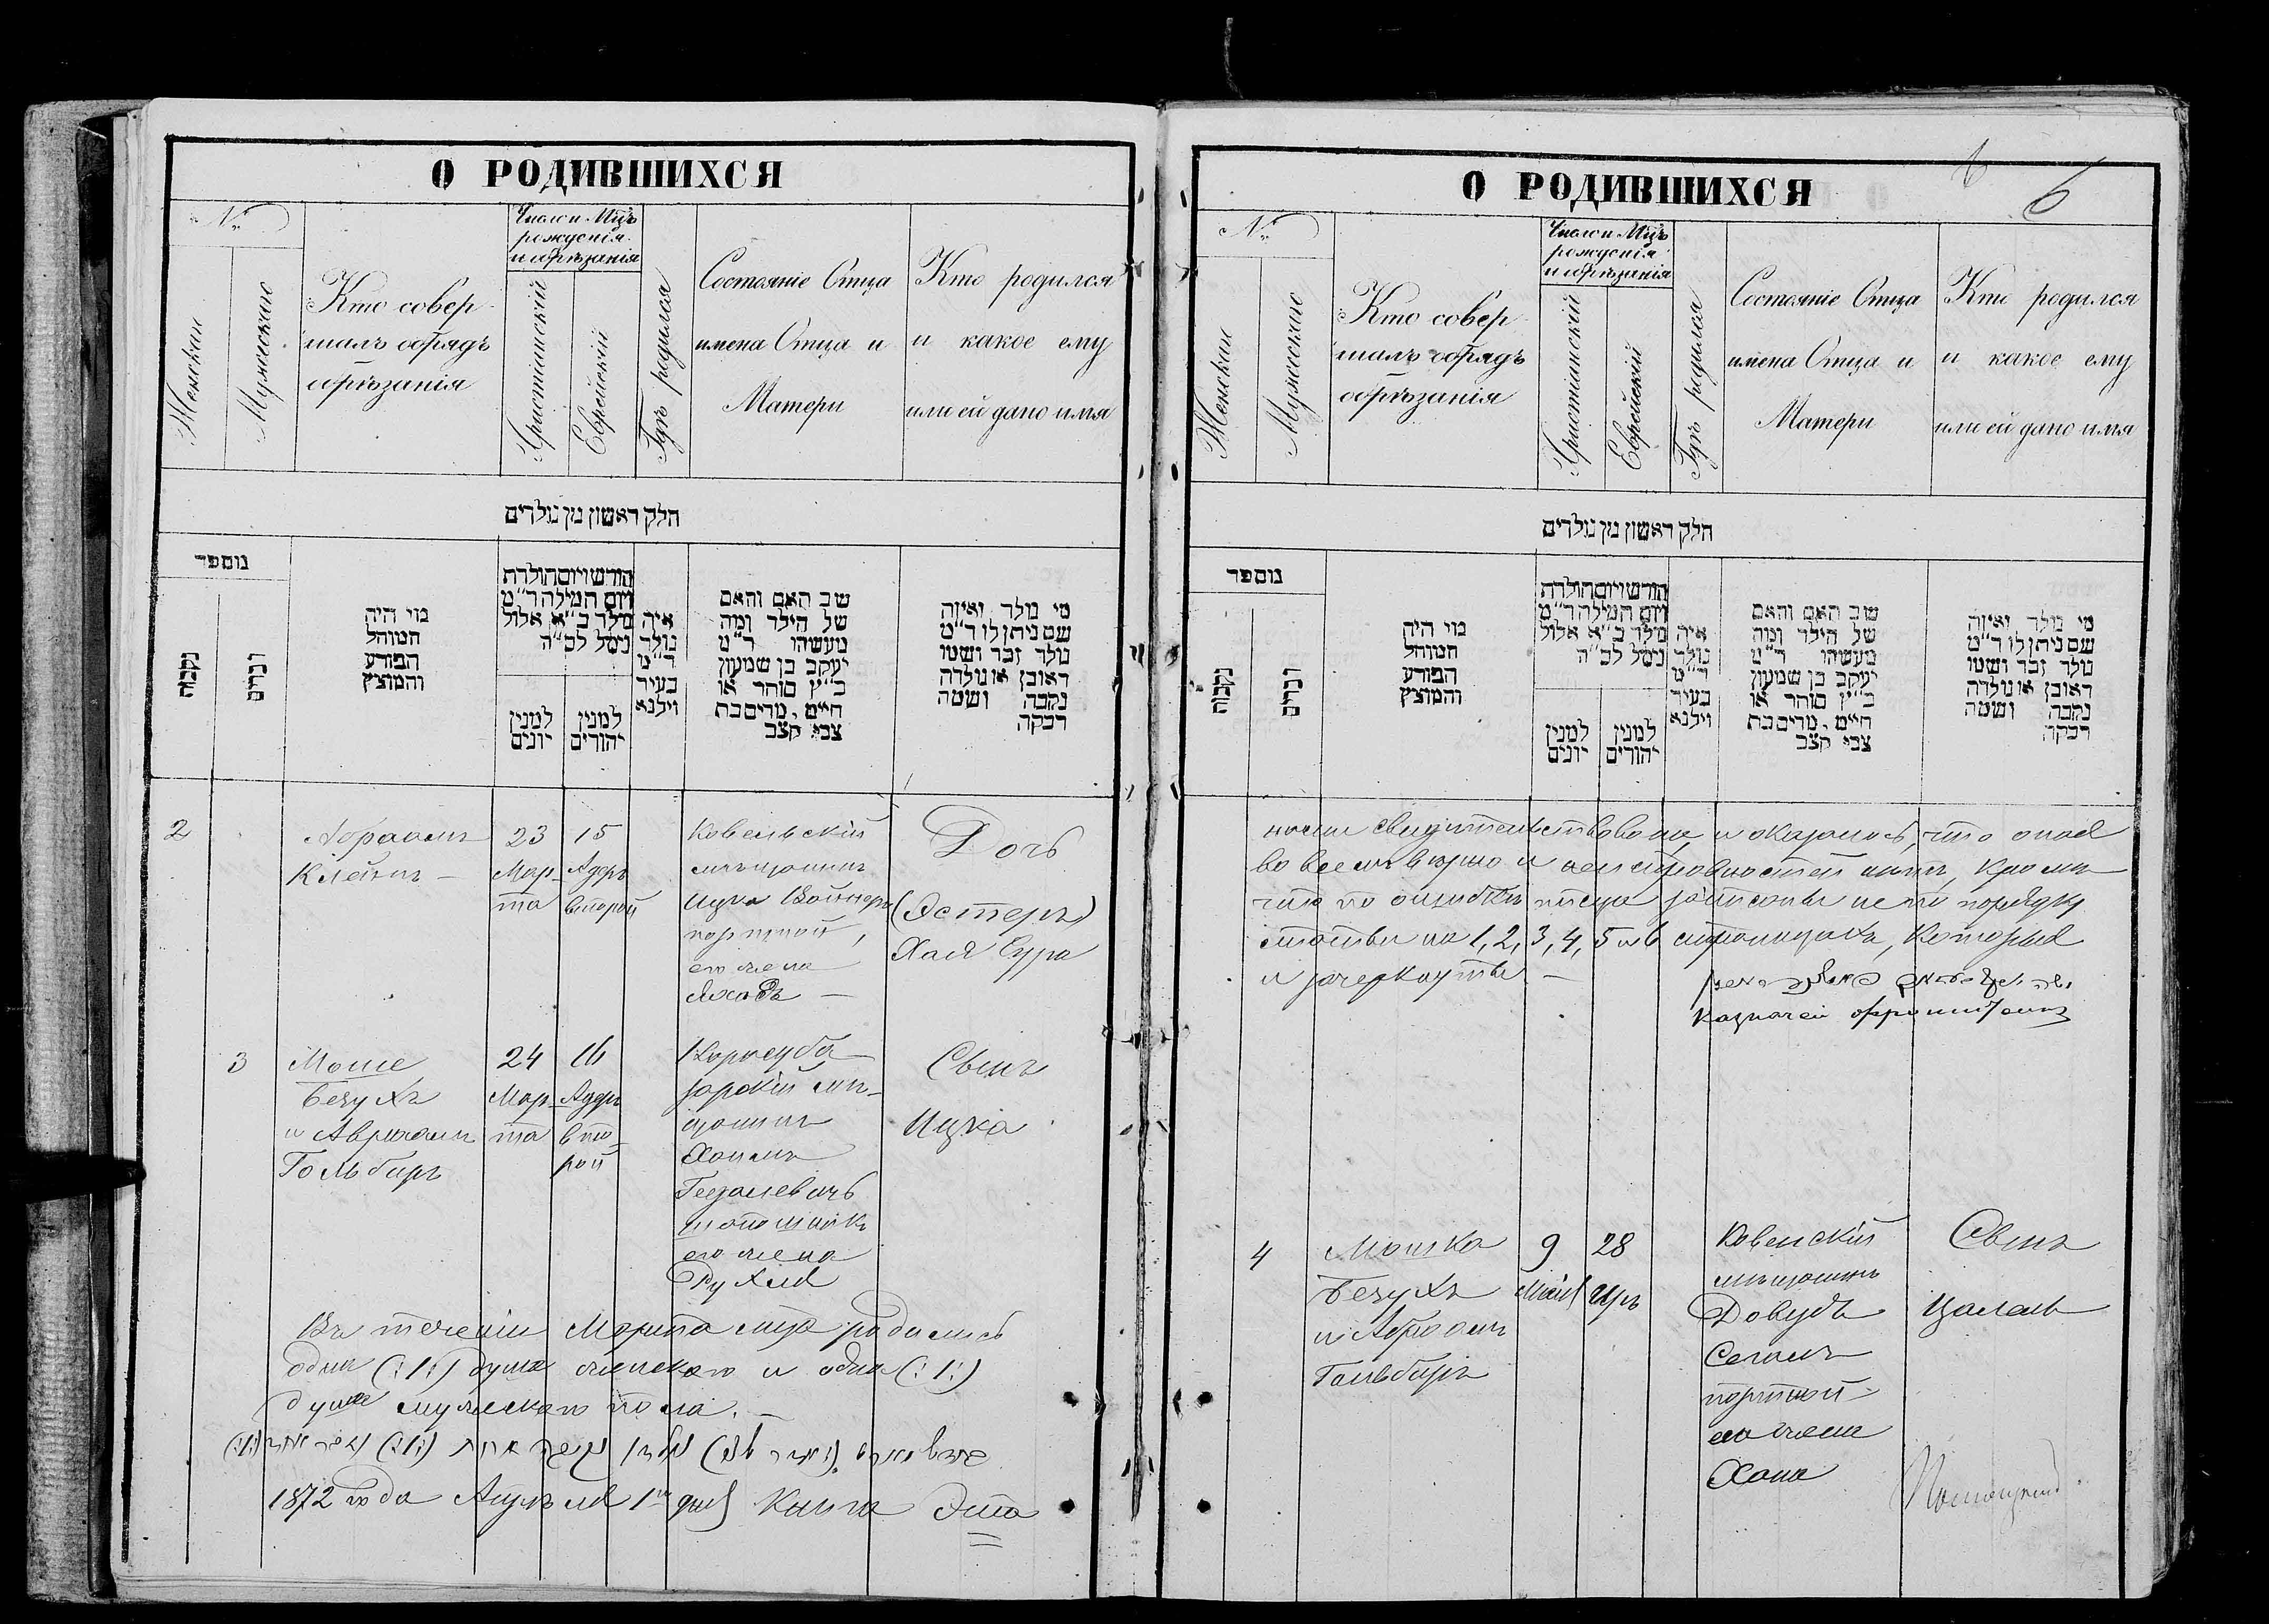 О РОДИВШИХСЯ
№
Женская
Мужескаго
Кто совер-
шалъ обрядъ
обрѣзанія
Число и Мцъ
рожденія
и обрѣзанія
Христіанскій
Еврейскій
Гдѣ родился
Состояніе Отца
имена Отца и
Матери
Кто родился
и какое ему
или ей дано имя
חלק ראשון מן נולדים
נומפר
נקבות
זכרים
מי היה
המוהל
הפורע
והמוצץ
חודש ויום הולדת
ויום המילה ד״מ
נולד כ״א אלול
נימל לכ״ה
למנין
יונים
למנין
יהודים
איה
נולד
ד״מ
בעיר
וילנא
שם האם והאם
של הילד ומה
מעשהו ד״מ
יעקב בן שמעון
כ״ץ סוחר או
חיים, מרים בת
צבי קצב
מי נולד ואיזה
שם ניתן לו ד״מ
נולד זכר ושמו
ראובן או נולדה
נקבה ושמה
רבקה
2
Абраамъ
Клейнъ —
23
Мар-
та
15
Адеръ
второй
Ковельскій
мѣщанинъ
Ицка Войнеръ
портной,
его жена
Дочь
(Эстеръ)
Хая Сура
3
Моше
Безухъ
и Авраамъ
Гольбиръ
24
Мар-
та
16
Адеръ
вто-
рой
Карасуба-
зарскій мѣ-
щанинъ
Хаимъ
Гедалевичъ
его жена
Рухля
Сынъ
Ицка
Въ теченіи Марта мца родилась
одна (:1:) душа женскаго и одна (:1:)
душа мужескаго пола. —
1872 года Апрѣля 1го дня Книга Эта
О РОДИВШИХСЯ
6
№
Женская
Мужескаго
Кто совер-
шалъ обрядъ
обрѣзанія
Число и Мцъ
рожденія
и обрѣзанія
Христіанскій
Еврейскій
Гдѣ родился
Состояніе Отца
имена Отца и
Матери
Кто родился
и какое ему
или ей дано имя
חלק ראשון מן נולדים
נומפר
נקבות
זכרים
מי היה
המוהל
הפורע
והמוצץ
חודש ויום הולדת
ויום המילה ד״מ
נולד כ״א אלול
נימל לכ״ה
למנין
יונים
למנין
יהודים
איה
נולד
ד״מ
בעיר
וילנא
שם האם והאם
של הילד ומה
מעשהו ד״מ
יעקב בן שמעון
כ״ץ סוחר או
חיים, מרים בת
צבי קצב
מי נולד ואיזה
שם ניתן לו ד״מ
נולד זכר ושמו
ראובן או נולדה
נקבה ושמה
רבקה
нами свидѣтельствована, и оказалось, что оная
во всемъ вѣрно и неисправностей нѣтъ, кромѣ
что по ошибкѣ писца записаны не по порядку
статьи на 1, 2, 3, 4, 5 и 6 страницахъ, которыя
и зачеркнуты —
Казначей
4
Мошка
Безухъ
и Абраамъ
Гольбиръ
9
Мая
28
Иръ
Ковенскій
мѣщанинъ
Довудъ
Сегалъ
портной
его жена
Хана
Сынъ
Цалель